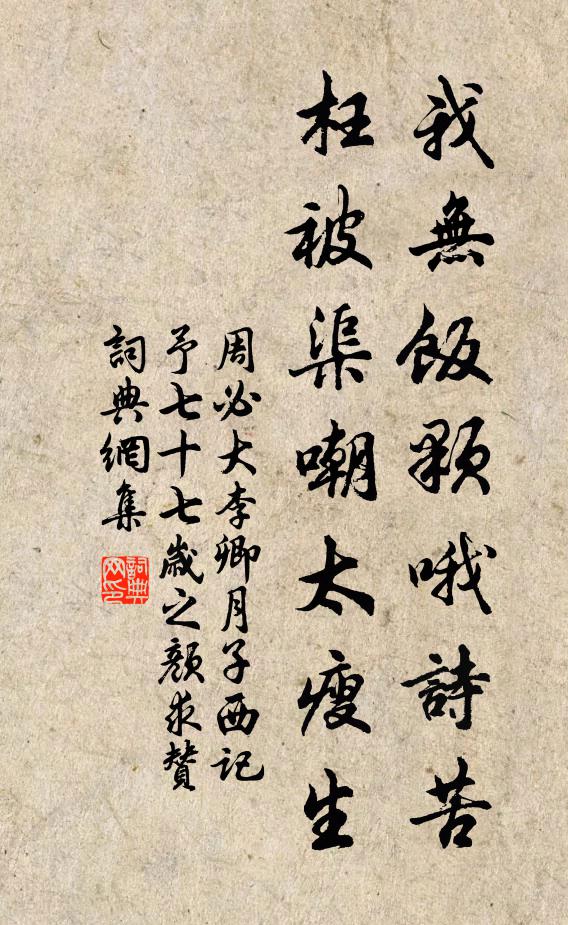 我無飯顆哦詩苦
枉被渠嘲太瘦生
周必大李卿月子西記
予七十七歲之顏求贊
詞典網集
詞典
网印